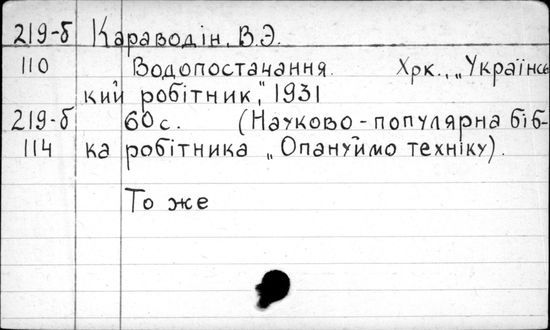 219-б Караводін, В.Э.
110 Водопостачання. Хрк., „Українсь
кий робітник," 1931
219-б 60 с. (Науково-популярна біб-
114 ка робітника „Опануймо техніку).
То же